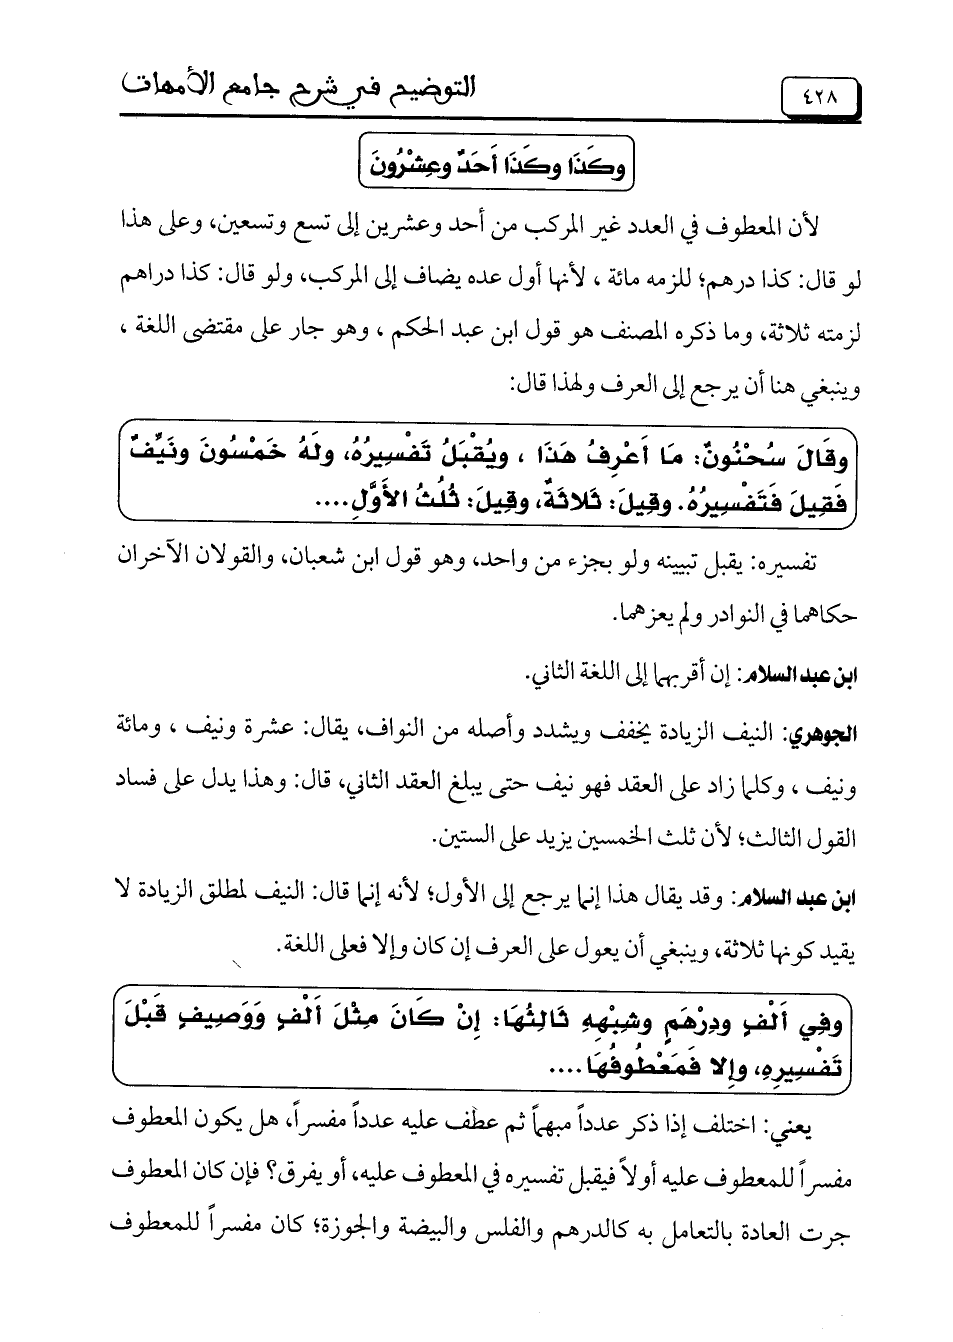 ٤٢٨
التوضيح في شرح جامع الأمهات
وكَذَا وكَذَا أَحَدٌ وعِشْرُونَ
لأن المعطوف في العدد غير المركب من أحد وعشرين إلى تسع وتسعين، وعلى هذا
لو قال: كذا درهم؛ للزمه مائة ، لأنها أول عده يضاف إلى المركب، ولو قال: كذا دراهم
لزمته ثلاثة، وما ذكره المصنف هو قول ابن عبد الحكم ، وهو جار على مقتضى اللغة ،
وينبغي هنا أن يرجع إلى العرف ولهذا قال:
وقَالَ سُحْنُونٌ: مَا أَعْرِفُ هَذَا ، ويُقْبَلُ تَفْسِيرُهُ، ولَهُ خَمْسُونَ ونَيِّفٌ
فَقِيلَ فَتَفْسِيرُهُ. وقِيلَ: ثَلاثَةٌ، وقِيلَ: ثُلُثُ الأَوَّلِ....
تفسيره: يقبل تبيينه ولو بجزء من واحد، وهو قول ابن شعبان، والقولان الآخران
حكاهما في النوادر ولم يعزهما.
ابن عبد السلام: إن أقربهما إلى اللغة الثاني.
الجوهري: النيف الزيادة يخفف ويشدد وأصله من النواف، يقال: عشرة ونيف ، ومائة
ونيف ، وكلما زاد على العقد فهو نيف حتى يبلغ العقد الثاني، قال: وهذا يدل على فساد
القول الثالث؛ لأن ثلث الخمسين يزيد على الستين.
ابن عبد السلام: وقد يقال هذا إنما يرجع إلى الأول؛ لأنه إنما قال: النيف لمطلق الزيادة لا
يقيد كونها ثلاثة، وينبغي أن يعول على العرف إن كان وإلا فعلى اللغة.
وفِي أَلْفٍ ودِرْهَمٍ وشِبْهِهِ ثَالِثُهَا: إِنْ كَانَ مِثْلَ أَلْفٍ ووَصِيفٍ قَبْلَ
تَفْسِيرِهِ، وإِلا فَمَعْطُوفُهَا....
يعني: اختلف إذا ذكر عدداً مبهماً ثم عطف عليه عدداً مفسراً، هل يكون المعطوف
مفسراً للمعطوف عليه أولاً فيقبل تفسيره في المعطوف عليه، أو يفرق؟ فإن كان المعطوف
جرت العادة بالتعامل به كالدرهم والفلس والبيضة والجوزة؛ كان مفسراً للمعطوف